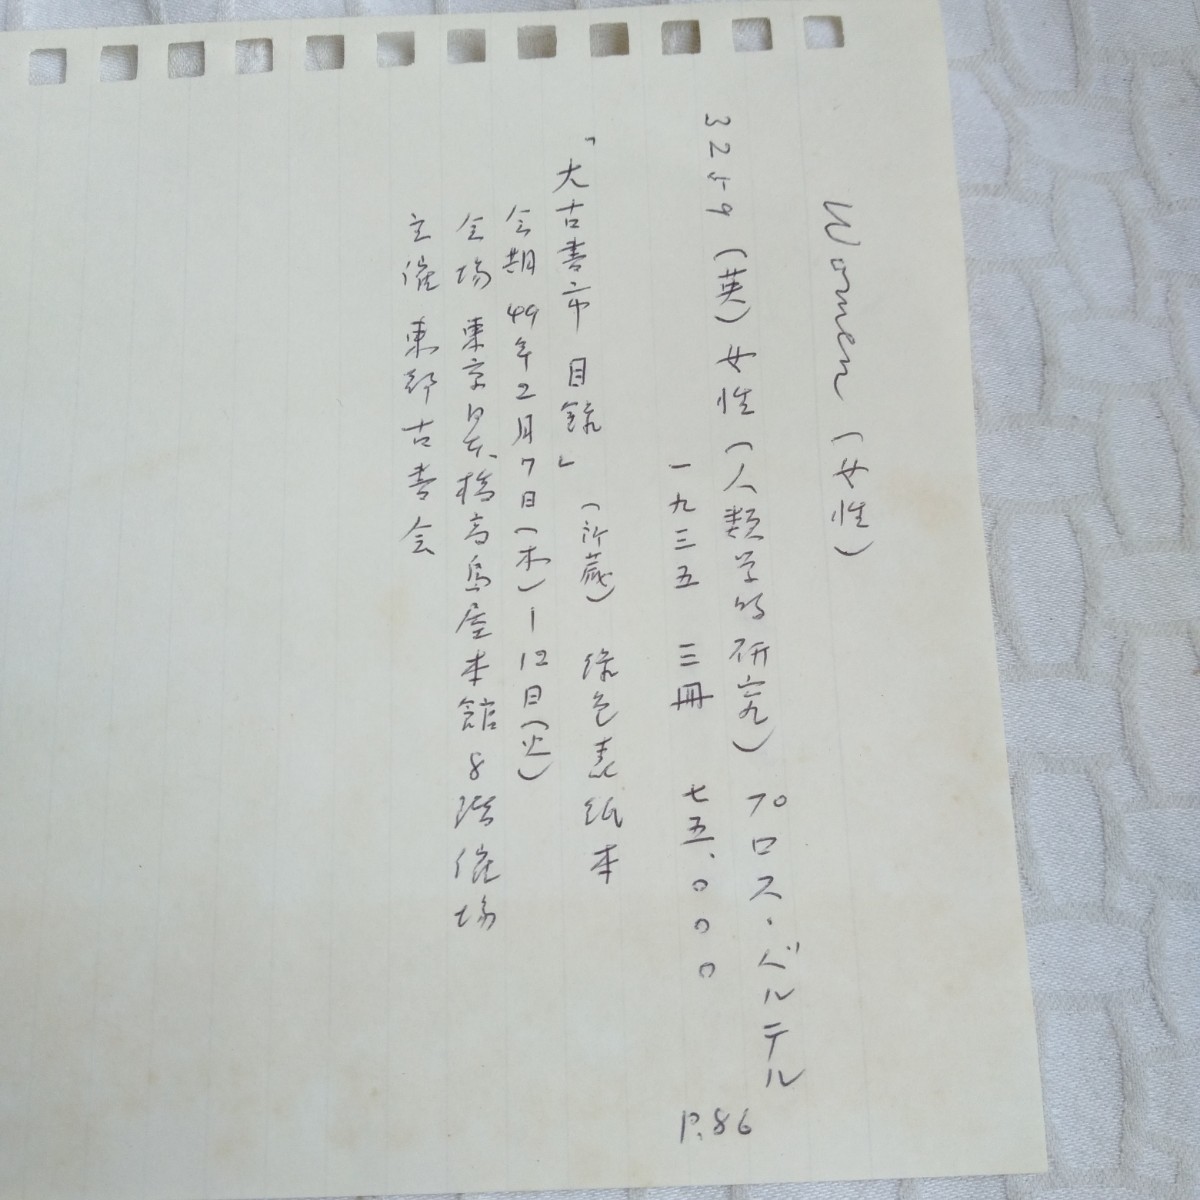 Women (女性)
3259 (英) 女性 (人類学的研究) プロス・ベルテル
一九三五 三冊 七五、〇〇〇 P.86
「大古書市 目録」 (所蔵) 緑色表紙本
会期 49年2月7日(木)－12日(火)
会場 東京日本橋高島屋本館8階催場
主催 東都古書会